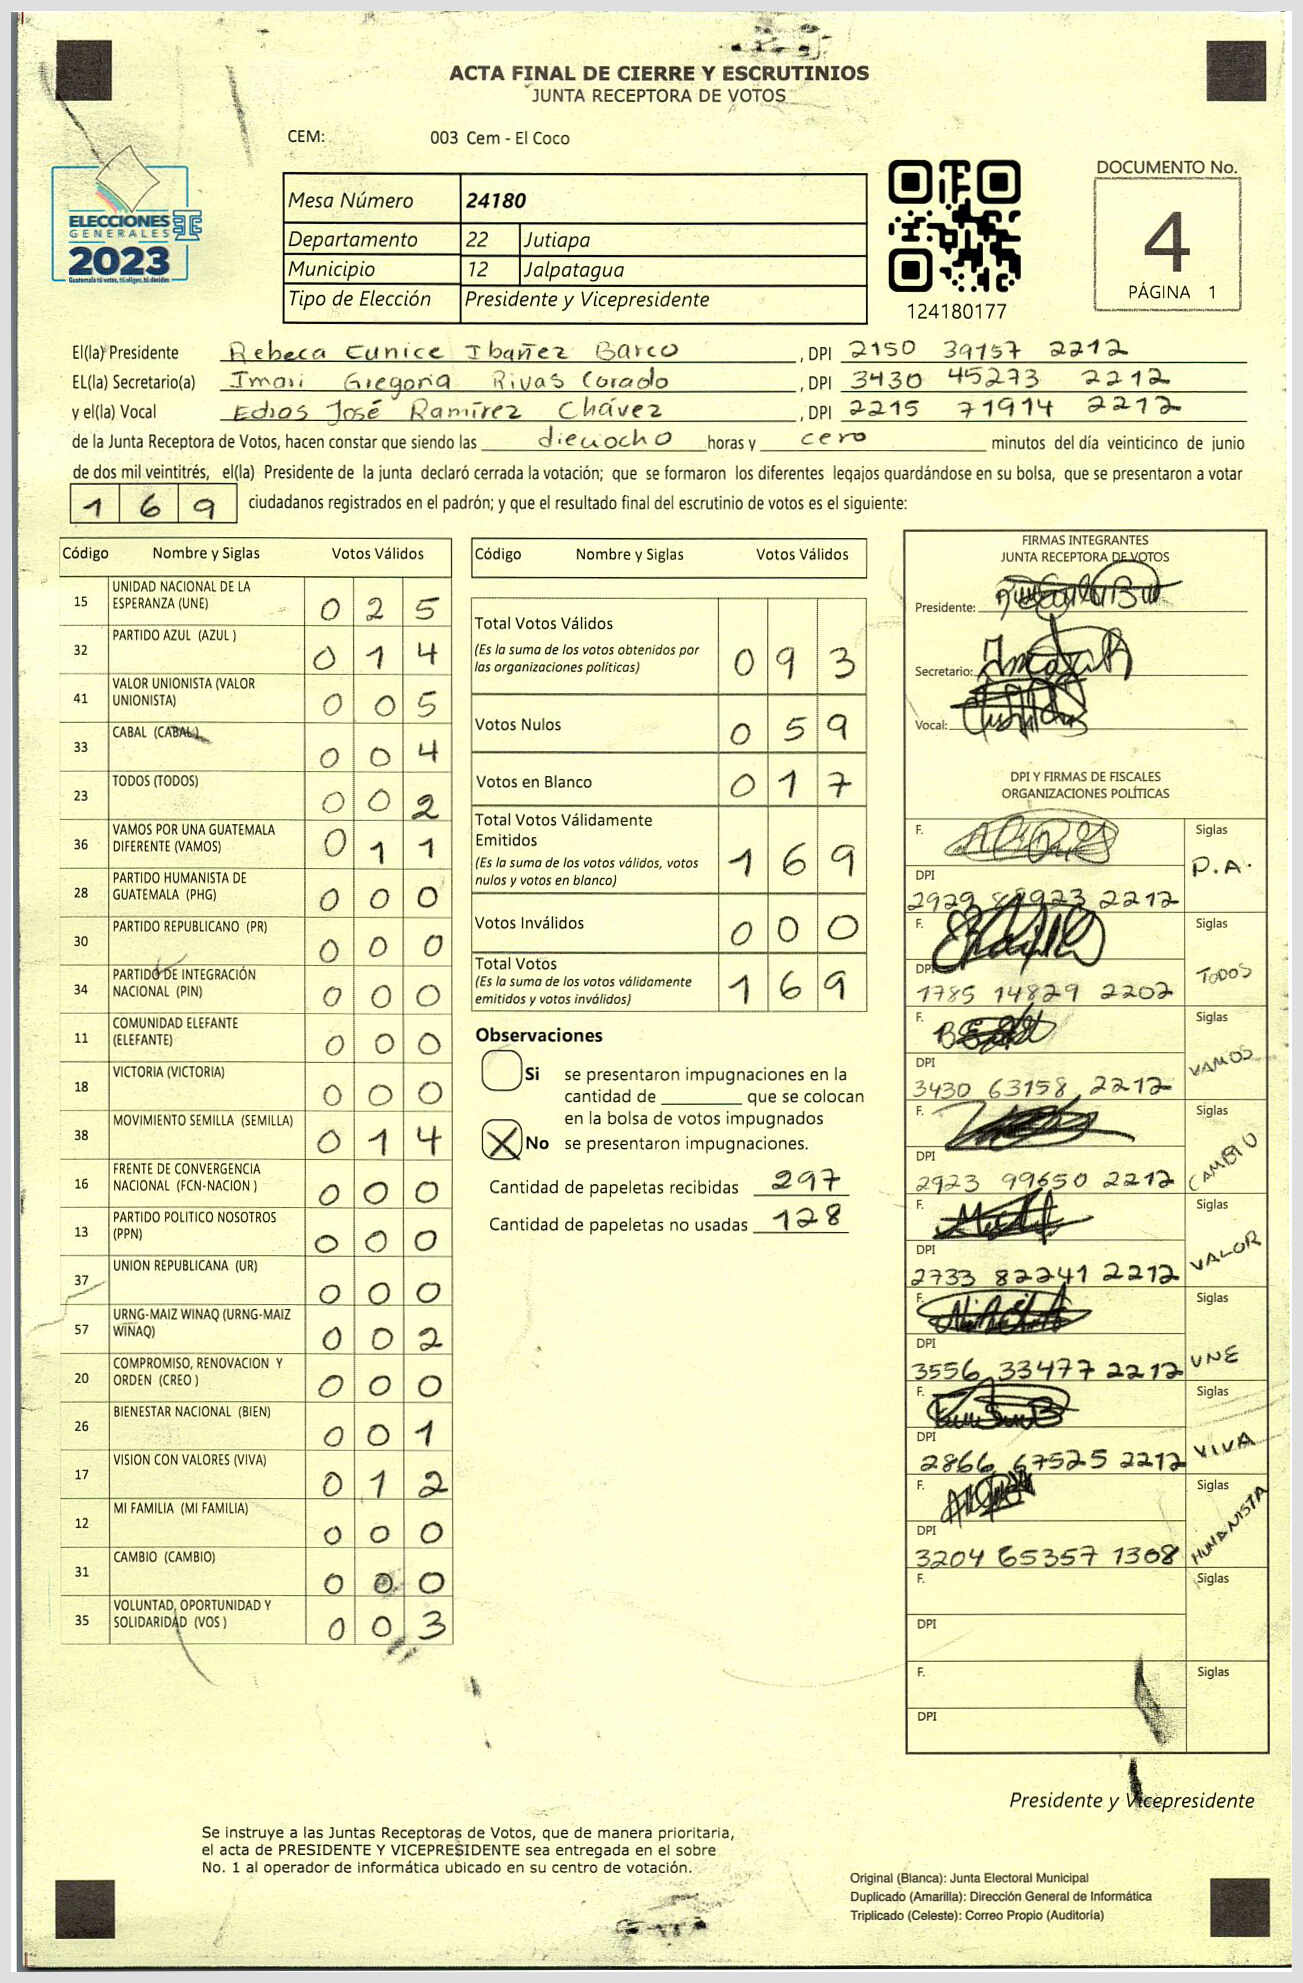 ACTA FINAL DE CIERRE Y ESCRUTINIOS
JUNTA RECEPTORA DE VOTOS
CEM: 003 Cem - El Coco
ELECCIONES
GENERALES
2023
Guatemala tú votas, tú eliges, tú decides
Mesa Número 24180
Departamento 22 Jutiapa
Municipio 12 Jalpatagua
Tipo de Elección Presidente y Vicepresidente
124180177
DOCUMENTO No.
4
PÁGINA 1
El(la) Presidente Rebeca Eunice Ibañez Barco , DPI 2150 39157 2212
EL(la) Secretario(a) Imari Gregoria Rivas Corado , DPI 3430 45273 2212
y el(la) Vocal Edios José Ramírez Chávez , DPI 2215 71914 2212
de la Junta Receptora de Votos, hacen constar que siendo las dieciocho horas y cero minutos del día veinticinco de junio
de dos mil veintitrés, el(la) Presidente de la junta declaró cerrada la votación; que se formaron los diferentes legajos guardándose en su bolsa, que se presentaron a votar
1 6 9 ciudadanos registrados en el padrón; y que el resultado final del escrutinio de votos es el siguiente:
Código Nombre y Siglas Votos Válidos
15 UNIDAD NACIONAL DE LA
ESPERANZA (UNE) 0 2 5
32 PARTIDO AZUL (AZUL ) 0 1 4
41 VALOR UNIONISTA (VALOR
UNIONISTA) 0 0 5
33 CABAL (CABAL ) 0 0 4
23 TODOS (TODOS) 0 0 2
36 VAMOS POR UNA GUATEMALA
DIFERENTE (VAMOS) 0 1 1
28 PARTIDO HUMANISTA DE
GUATEMALA (PHG) 0 0 0
30 PARTIDO REPUBLICANO (PR) 0 0 0
34 PARTIDO DE INTEGRACIÓN
NACIONAL (PIN) 0 0 0
11 COMUNIDAD ELEFANTE
(ELEFANTE) 0 0 0
18 VICTORIA (VICTORIA) 0 0 0
38 MOVIMIENTO SEMILLA (SEMILLA) 0 1 4
16 FRENTE DE CONVERGENCIA
NACIONAL (FCN-NACION ) 0 0 0
13 PARTIDO POLITICO NOSOTROS
(PPN) 0 0 0
37 UNION REPUBLICANA (UR) 0 0 0
57 URNG-MAIZ WINAQ (URNG-MAIZ
WINAQ) 0 0 2
20 COMPROMISO, RENOVACION Y
ORDEN (CREO ) 0 0 0
26 BIENESTAR NACIONAL (BIEN) 0 0 1
17 VISION CON VALORES (VIVA) 0 1 2
12 MI FAMILIA (MI FAMILIA) 0 0 0
31 CAMBIO (CAMBIO) 0 0 0
35 VOLUNTAD, OPORTUNIDAD Y
SOLIDARIDAD (VOS ) 0 0 3
Código Nombre y Siglas Votos Válidos
Total Votos Válidos
(Es la suma de los votos obtenidos por
las organizaciones políticas) 0 9 3
Votos Nulos 0 5 9
Votos en Blanco 0 1 7
Total Votos Válidamente
Emitidos
(Es la suma de los votos válidos, votos
nulos y votos en blanco) 1 6 9
Votos Inválidos 0 0 0
Total Votos
(Es la suma de los votos válidamente
emitidos y votos inválidos) 1 6 9
Observaciones
Si se presentaron impugnaciones en la
cantidad de ________ que se colocan
en la bolsa de votos impugnados
X No se presentaron impugnaciones.
Cantidad de papeletas recibidas 297
Cantidad de papeletas no usadas 128
FIRMAS INTEGRANTES
JUNTA RECEPTORA DE VOTOS
Presidente:
Secretario:
Vocal:
DPI Y FIRMAS DE FISCALES
ORGANIZACIONES POLÍTICAS
F. Siglas P.A.
DPI
F. Siglas TODOS
DPI
1785 14829 2202
F. Siglas VAMOS
DPI
3430 63158 2212
F. Siglas CAMBIO
DPI
2923 99650 2212
F. Siglas VALOR
DPI
2733 82241 2212
F. Siglas UNE
DPI
3556 33477 2212
F. Siglas VIVA
DPI
2866 67525 2212
F. Siglas HUMANISTA
DPI
3204 65357 1308
F. Siglas
DPI
F. Siglas
DPI
Presidente y Vicepresidente
Se instruye a las Juntas Receptoras de Votos, que de manera prioritaria,
el acta de PRESIDENTE Y VICEPRESIDENTE sea entregada en el sobre
No. 1 al operador de informática ubicado en su centro de votación.
Original (Blanca): Junta Electoral Municipal
Duplicado (Amarilla): Dirección General de Informática
Triplicado (Celeste): Correo Propio (Auditoría)